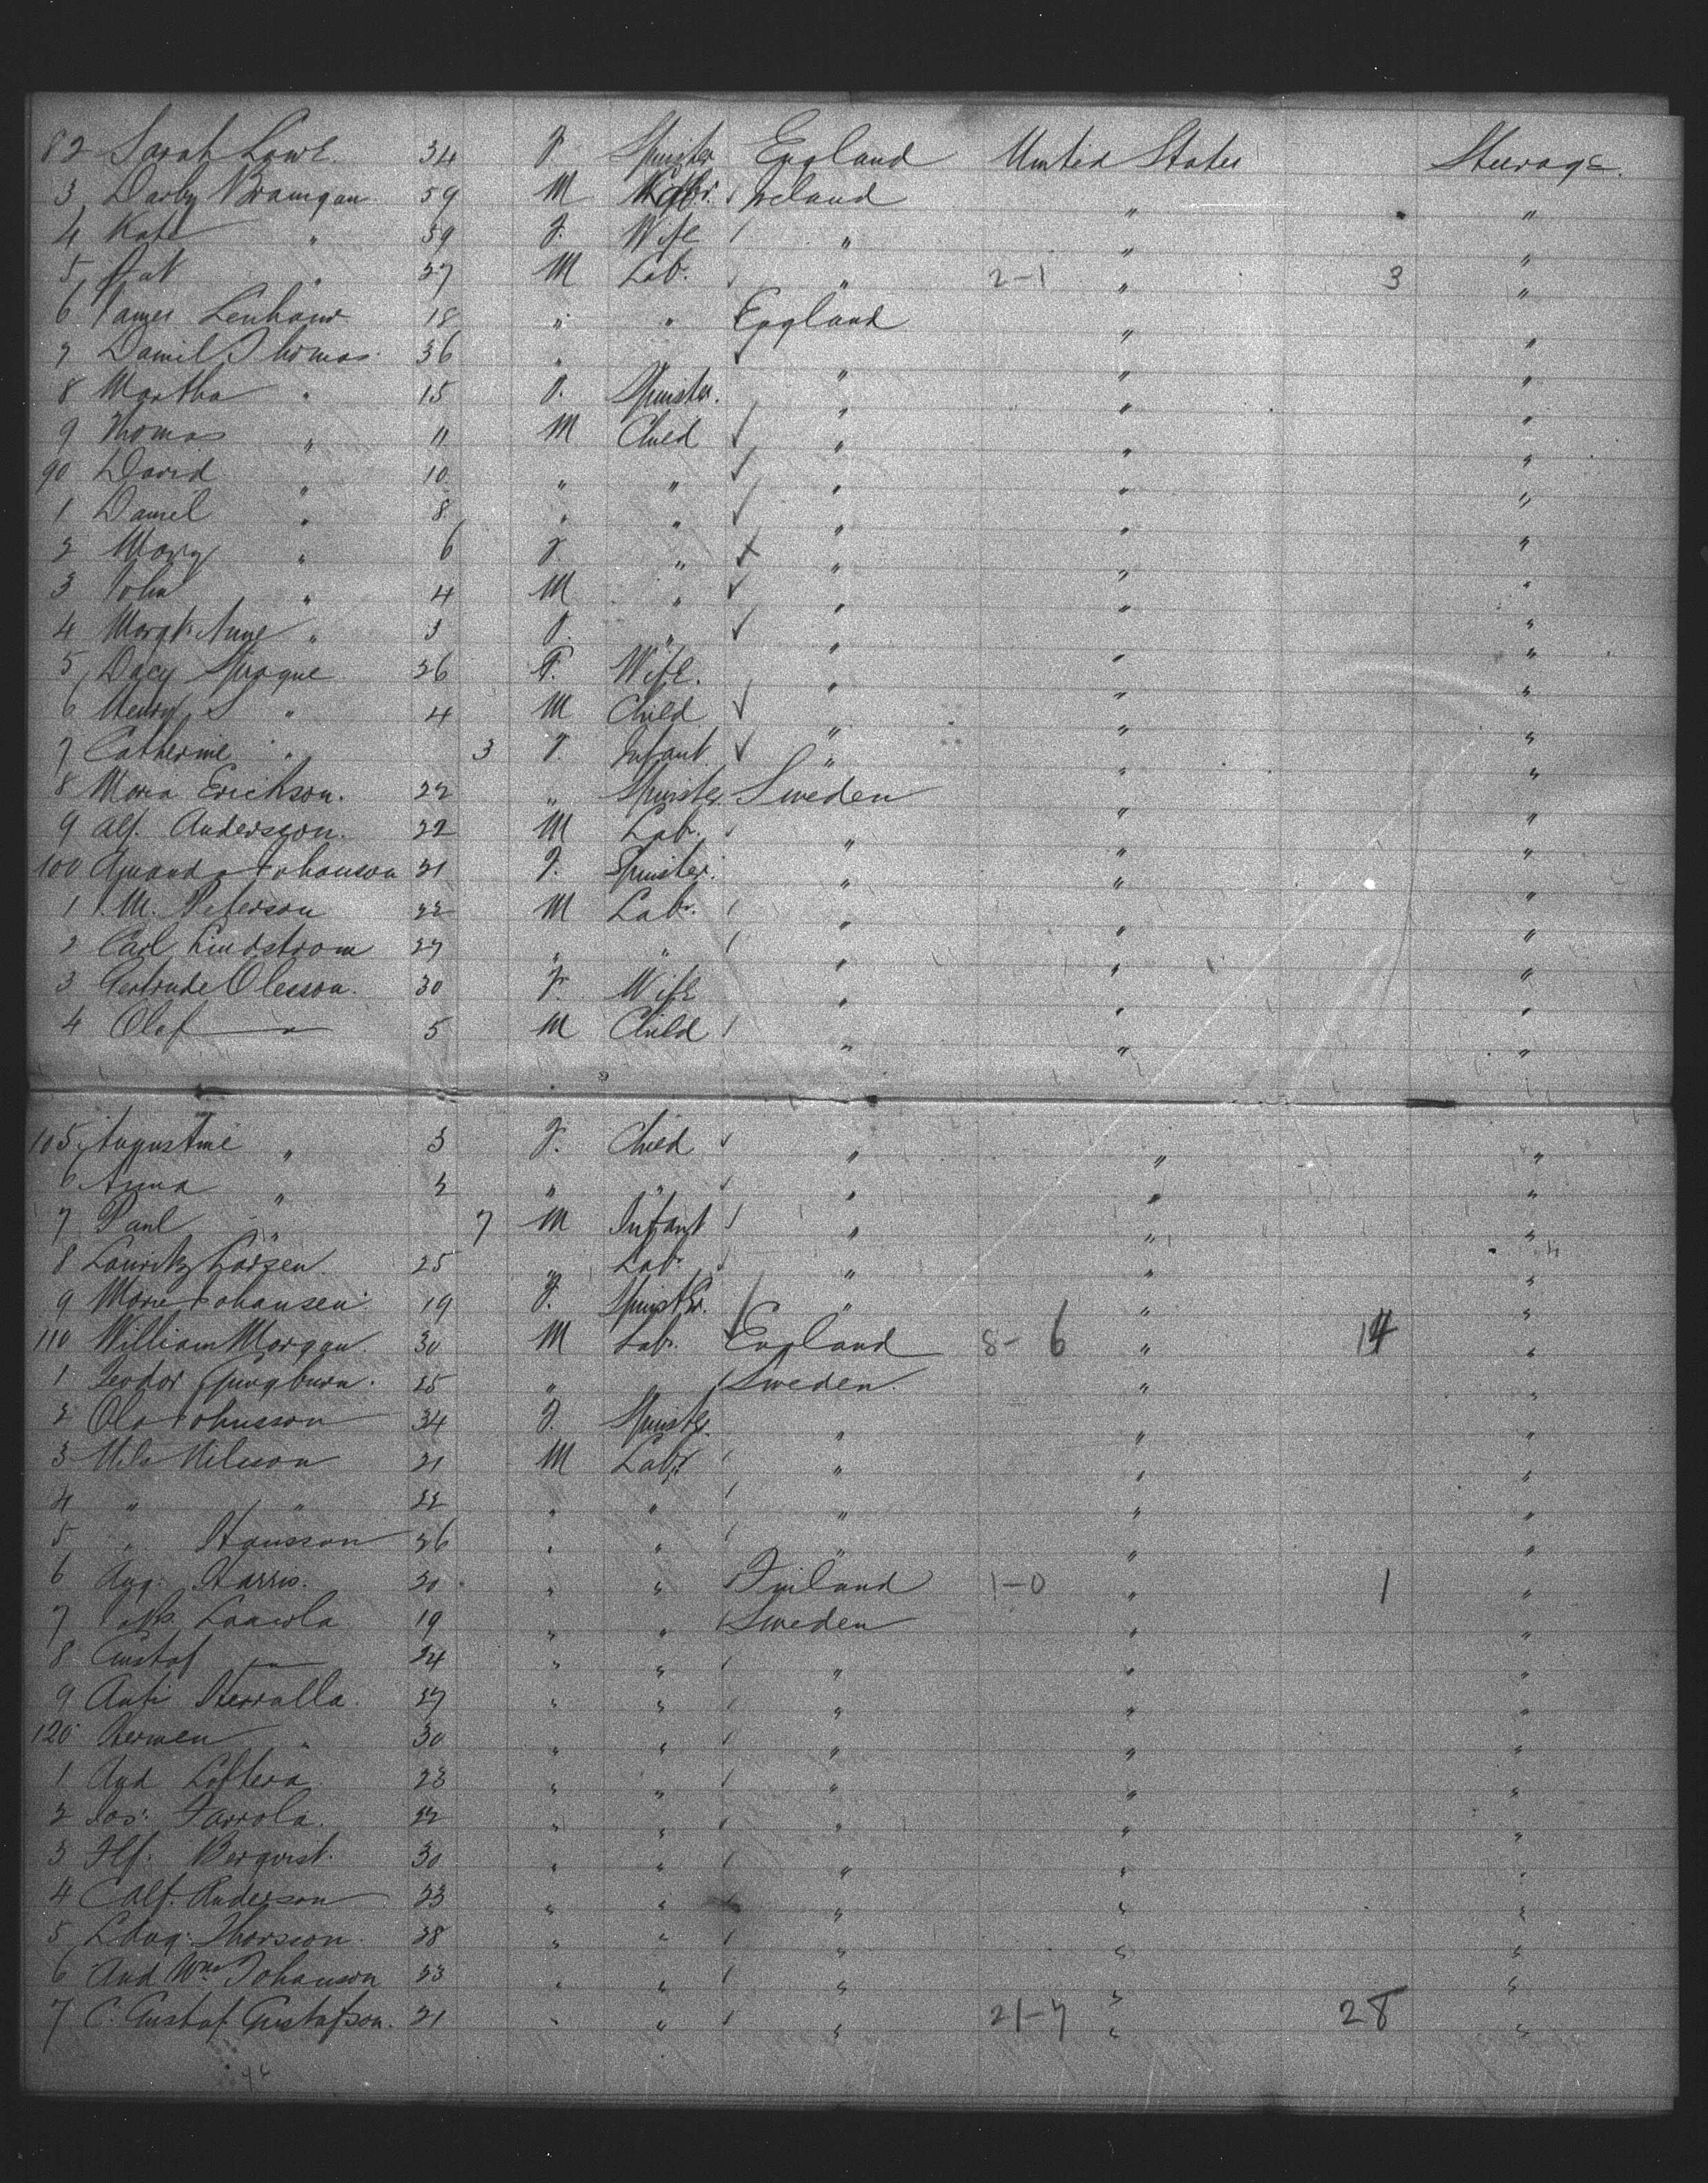 82 Sarah Lowe. 34 F Spinster England United States Steerage.
3 Darby Branigan 59 M Labr. Ireland " "
4 Kate " 59 F. Wife " " "
5 Pat " 27 M Lab. " 2-1 " 3 "
6 James 18 " " England " "
7 Daniel Thomas. 36 " " " "
8 Martha " 15 F. Spinster. " " "
9 Thomas " 11 M Child " " "
90 David " 10 " " " " "
1 Daniel " 8 " " " " "
2 Mary " 6 F " " " "
3 John " 4 M " " " "
4 Margt. Anne " 3 F. " " " "
5 Dacy Sprague 26 F. Wife. " " "
6 Henry S " 4 M Child " " "
7 Catherine " 3 F. Infant " " "
8 Maria Erickson. 22 " Spinster Sweden " "
9 Alf. Andersson. 22 M Lab. " " "
100 Amanda Johanson 21 F. Spinster. " " "
1 J. M. Peterson 22 M Lab. " " "
2 Carl Lindstrom 27 " " " " "
3 Gertrude Olesson. 30 F. Wife " " "
4 Olaf " 5 M Child " " "
105 Augustine " 3 F. Child " " "
6 Anna " 2 " " " " "
7 Paul " 7 M Infant " " "
8 Lauritz Larsen 25 " Lab. " " "
9 Marie Johansen 19 F. Spinster. " " "
110 William Morgan. 30 M Lab. England 8-6 " 14 "
1 25 " " Sweden. " "
2 Ola Johnsson 34 F. Spinster. " " "
3 Nils Nilsson 21 M Labr " " "
4 " " 22 " " " " "
5 " Hansson 26 " " " " "
6 Aug. Harris. 20 " " Finland 1-0 " 1 "
7 19 " " Sweden " "
8 Gustaf " 24 " " " " "
9 Anti Herralla. 27 " " " " "
120 Hermen " 30 " " " " "
1 And 23 " " " " "
2 Jos. 22 " " " " "
3 Alf. Berquist. 30 " " " " "
4 C Alf. Anderson 23 " " " " "
5 Thorsson. 38 " " " " "
6 And Wm. Johanson 23 " " " " "
7 C. Gustaf Gustafson. 21 " " " 21-7 " 28 "